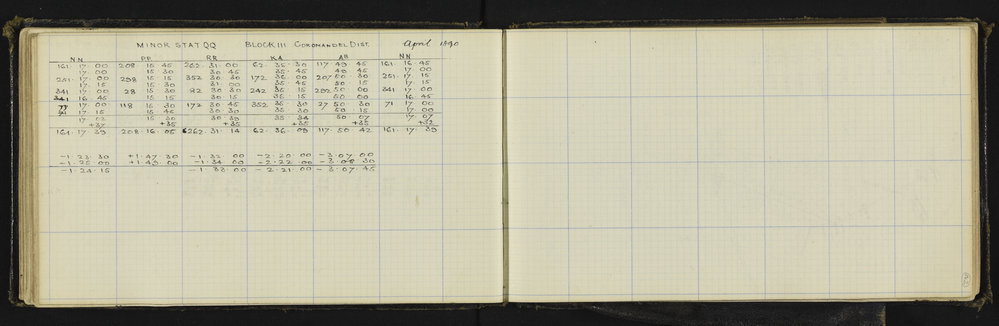 MINOR STAT QQ BLOCK III COROMANDEL DIST. April 1890
NN PP RR KA AH NN
161. 17. 00 208 15 45 262. 31. 00 62. 35. 30 117 49 45 161. 16. 45
17. 00 15 30 30 45 35. 45 49 45 17. 00
251. 17. 00 298 15 15 352 30 30 172 36 00 207 50 30 251. 17. 15
17. 15 15 30 31 00 35 45 50 15 17. 15
341 17. 00 28 15 30 82 30 30 242 36 15 292 50 00 341 17. 00
341 16 45 15 15 30 15 36 15 50 00 16. 45
77 17 00 118 15 30 172 30 45 352 35 30 27 50 30 71 17 00
71 17 15 15 45 30 30 35 30 50 15 17. 00
17 02 15 30 30 39 35 34 50 07 17. 07
+37 +35 +35 +35 +35 +32
161. 17 39 208. 16. 05 262. 31. 14 62. 36. 09 117. 50 42 161. 17. 39
-1. 23. 30 +1. 47. 30 -1. 32 00 -2. 20 00 -3. 07 00
-1. 25 00 +1. 49. 00 -1. 34 00 -2. 22 00 -3. 08 30
-1. 24. 15 -1. 33. 00 -2. 21. 00 -3. 07. 45